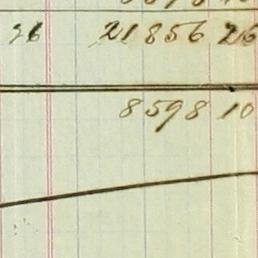 26 21856 26
8598 10